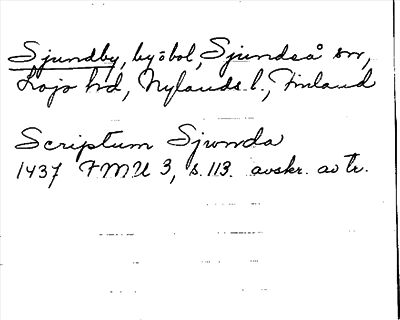 Sjundby, by o bol, Sjundeå sn,
Lojo hd, Nylands l., Finland
Scriptum Sjwnda
1437 FMU 3, s. 113. avskr. av tr.